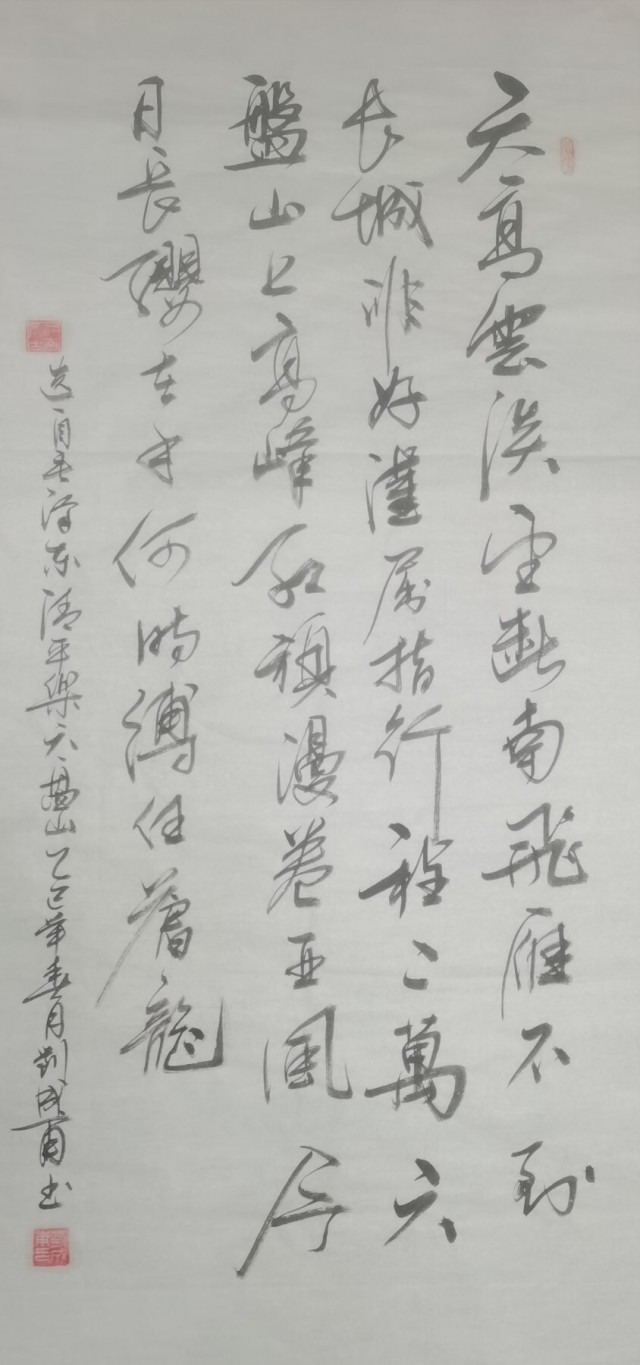 天高雲淡望断南飛雁不到
长城非好漢屈指行程二萬六
盤山上高峰红旗漫卷西風今
日長纓在手何時縛住蒼龍
选自毛泽东清平樂六盘山乙巳年春月刘成书